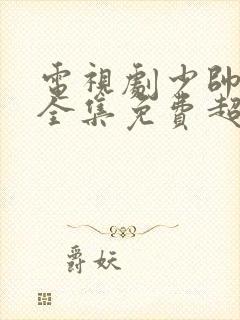 電視劇少帥
全集免費超
爵妖